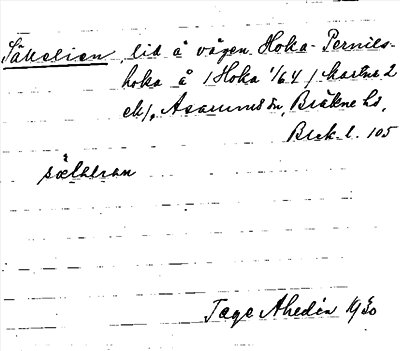 Säkelien, lid å vägen Hoka-Pernils-
hoka å (Hoka 1/64) kartns 2
ek), Asarums sn, Bräkne hd,
Blek. l. 105
Tage Ahedin 1930